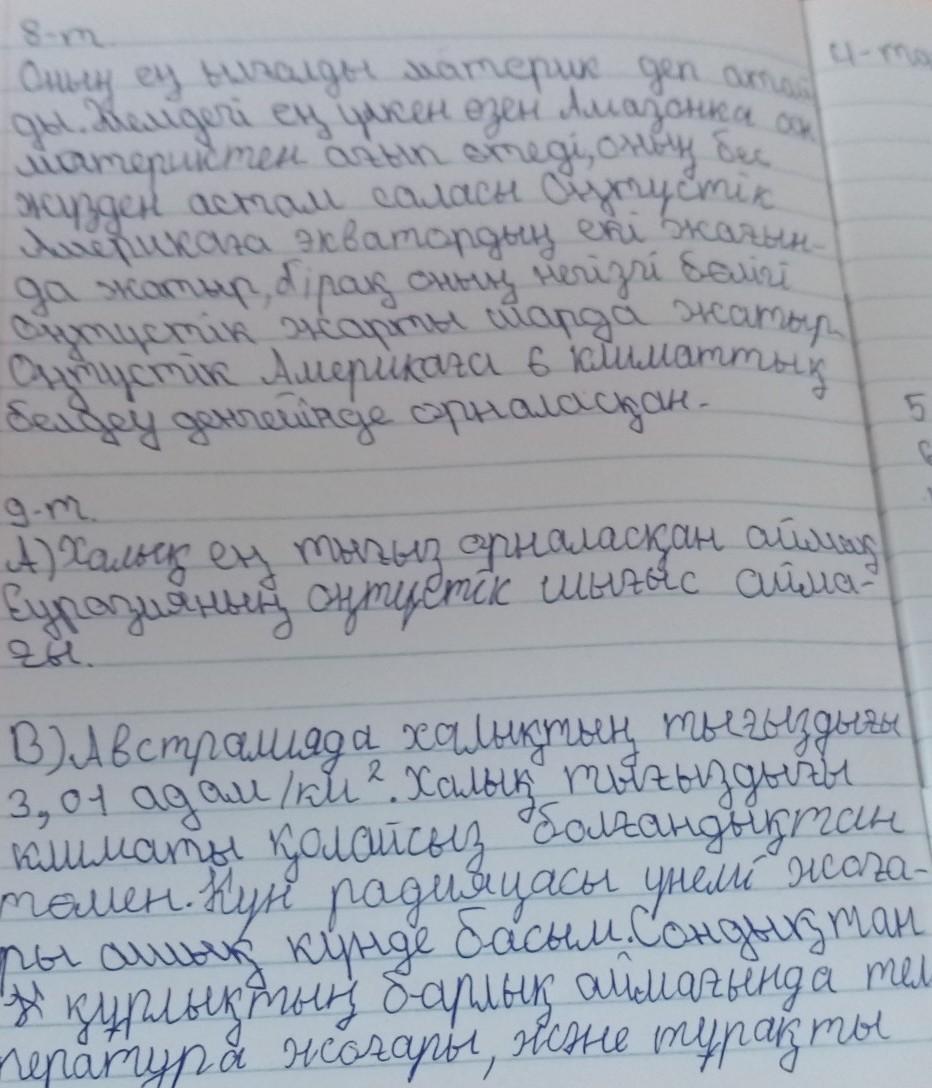 8-т
Оның ең ылғалды материк деп атай
ды. Әлемдегі ең үлкен өзен Амазонка осы
материктен ағып өтеді, оның бес
жүзден астам саласы Оңтүстік
Америкаға экватордың екі жағын-
да жатыр, бірақ оның негізгі бөлігі
Оңтүстік жарты шарда жатыр.
Оңтүстік Америкаға 6 климаттық
белдеу деңгейінде орналасқан.
9-т.
А) Халық ең тығыз орналасқан аймақ
Еуразияның оңтүстік шығыс айма-
ғы.
В) Австралияда халықтың тығыздығы
3,01 адам/км². Халық тығыздығы
климаты қолайсыз болғандықтан
төмен. Күн радияцасы үнемі жоға-
ры ашық күнде басым. Сондықтан
құрлықтың барлық аймағында тем
пература жоғары, және тұрақты
4-та
5
6